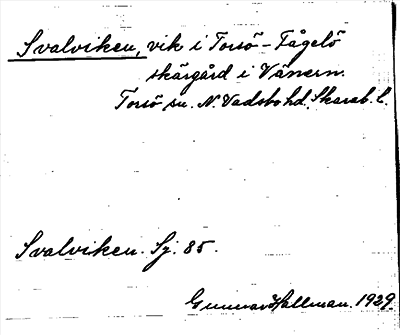 Svalviken, vik i Torsö-Fågelö
skärgård i Vänern.
Torsö sn. N. Vadsbo hd. Skarab. l.
Svalviken. Sj. 85.
Gunnar Hallman. 1929